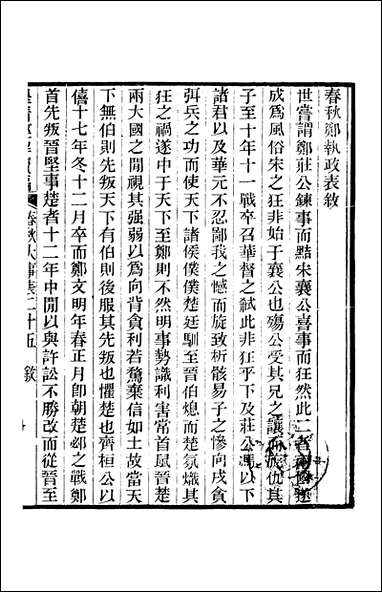 春秋鄭執政表敘
世嘗謂鄭莊公鍊事而黠宋襄公喜事而狂然此二者兩國遂
成為風俗宋之狂非始于襄公也殤公受其兄之讓而旋仇其
子至十年十一戰卒召華督之弒此非狂乎下及莊公馮以下
諸君以及華元不忍鄙我之憾而旋致析骸易子之慘向戌貪
弭兵之功而使天下諸侯僕僕楚廷馴至晉伯熄而楚氛熾其
狂之禍遂中于天下至鄭則不然明事勢識利害常首鼠晉楚
兩大國之間視其强弱以為向背貪利若鶩棄信如土故當天
下無伯則先叛天下有伯則後服其先叛也懼楚也齊桓公以
僖十七年冬十二月卒而鄭文明年春正月卽朝楚邲之戰鄭
首先叛晉堅事楚者十二年中間以與許訟不勝改而從晉至
春秋大事表二十五 敘